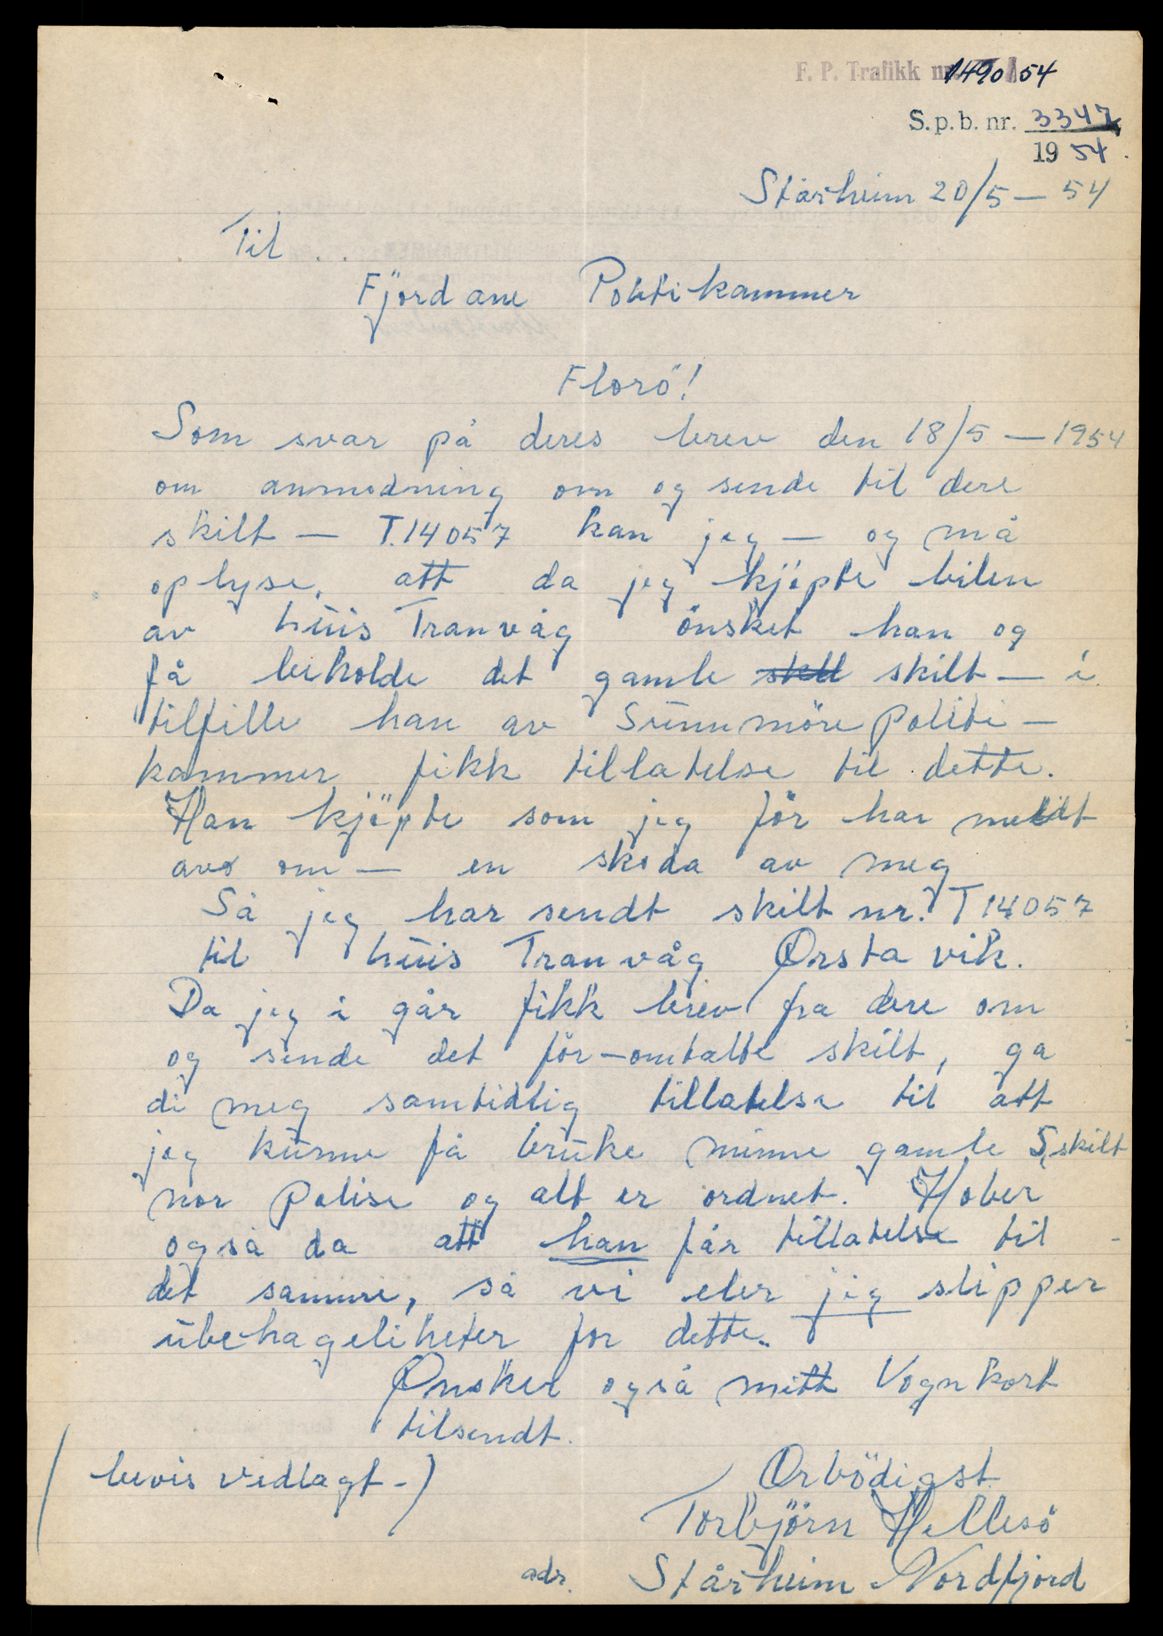 F. P. Trafikk nr. 1490/54
S. p. b. nr. 3347
19 54.
Stårheim 20/5 – 54
Til . .
Fjordane Politikammer
Florö!
Som svar på deres brev den 18/5 – 1954
om anmodning om og sende til dere
skilt – T.14057 kan jeg – og må
oplyse, att da jeg kjöpte bilen
av Tranvåg önsket han og
få beholde det gamle skilt – i
tilfelle han av Sunnmöre Politi –
kammer fikk tillatelse til dette.
Han kjöpte som jeg för har meldt
om – en skoda av meg
Så jeg har sendt skilt nr. T 14057
til Tranvåg Ørsta vik.
Da jeg i går fikk brev fra dere om
og sende det för-omtalte skilt, ga
di meg samtidtig tillatelse til att
jeg kunne få bruke minne gamle S, skilt
nor Polise og alt er ordnet. Håber
også da att han får tillatelse til
det samme, så vi eler jeg slipper
ubehageliheter for dette.
Ønsker også mitt Vognkort
tilsendt.
( bevis vedlagt – )
Ørbödigst
Torbjörn Hellesö
adr. Stårheim Nordfjord